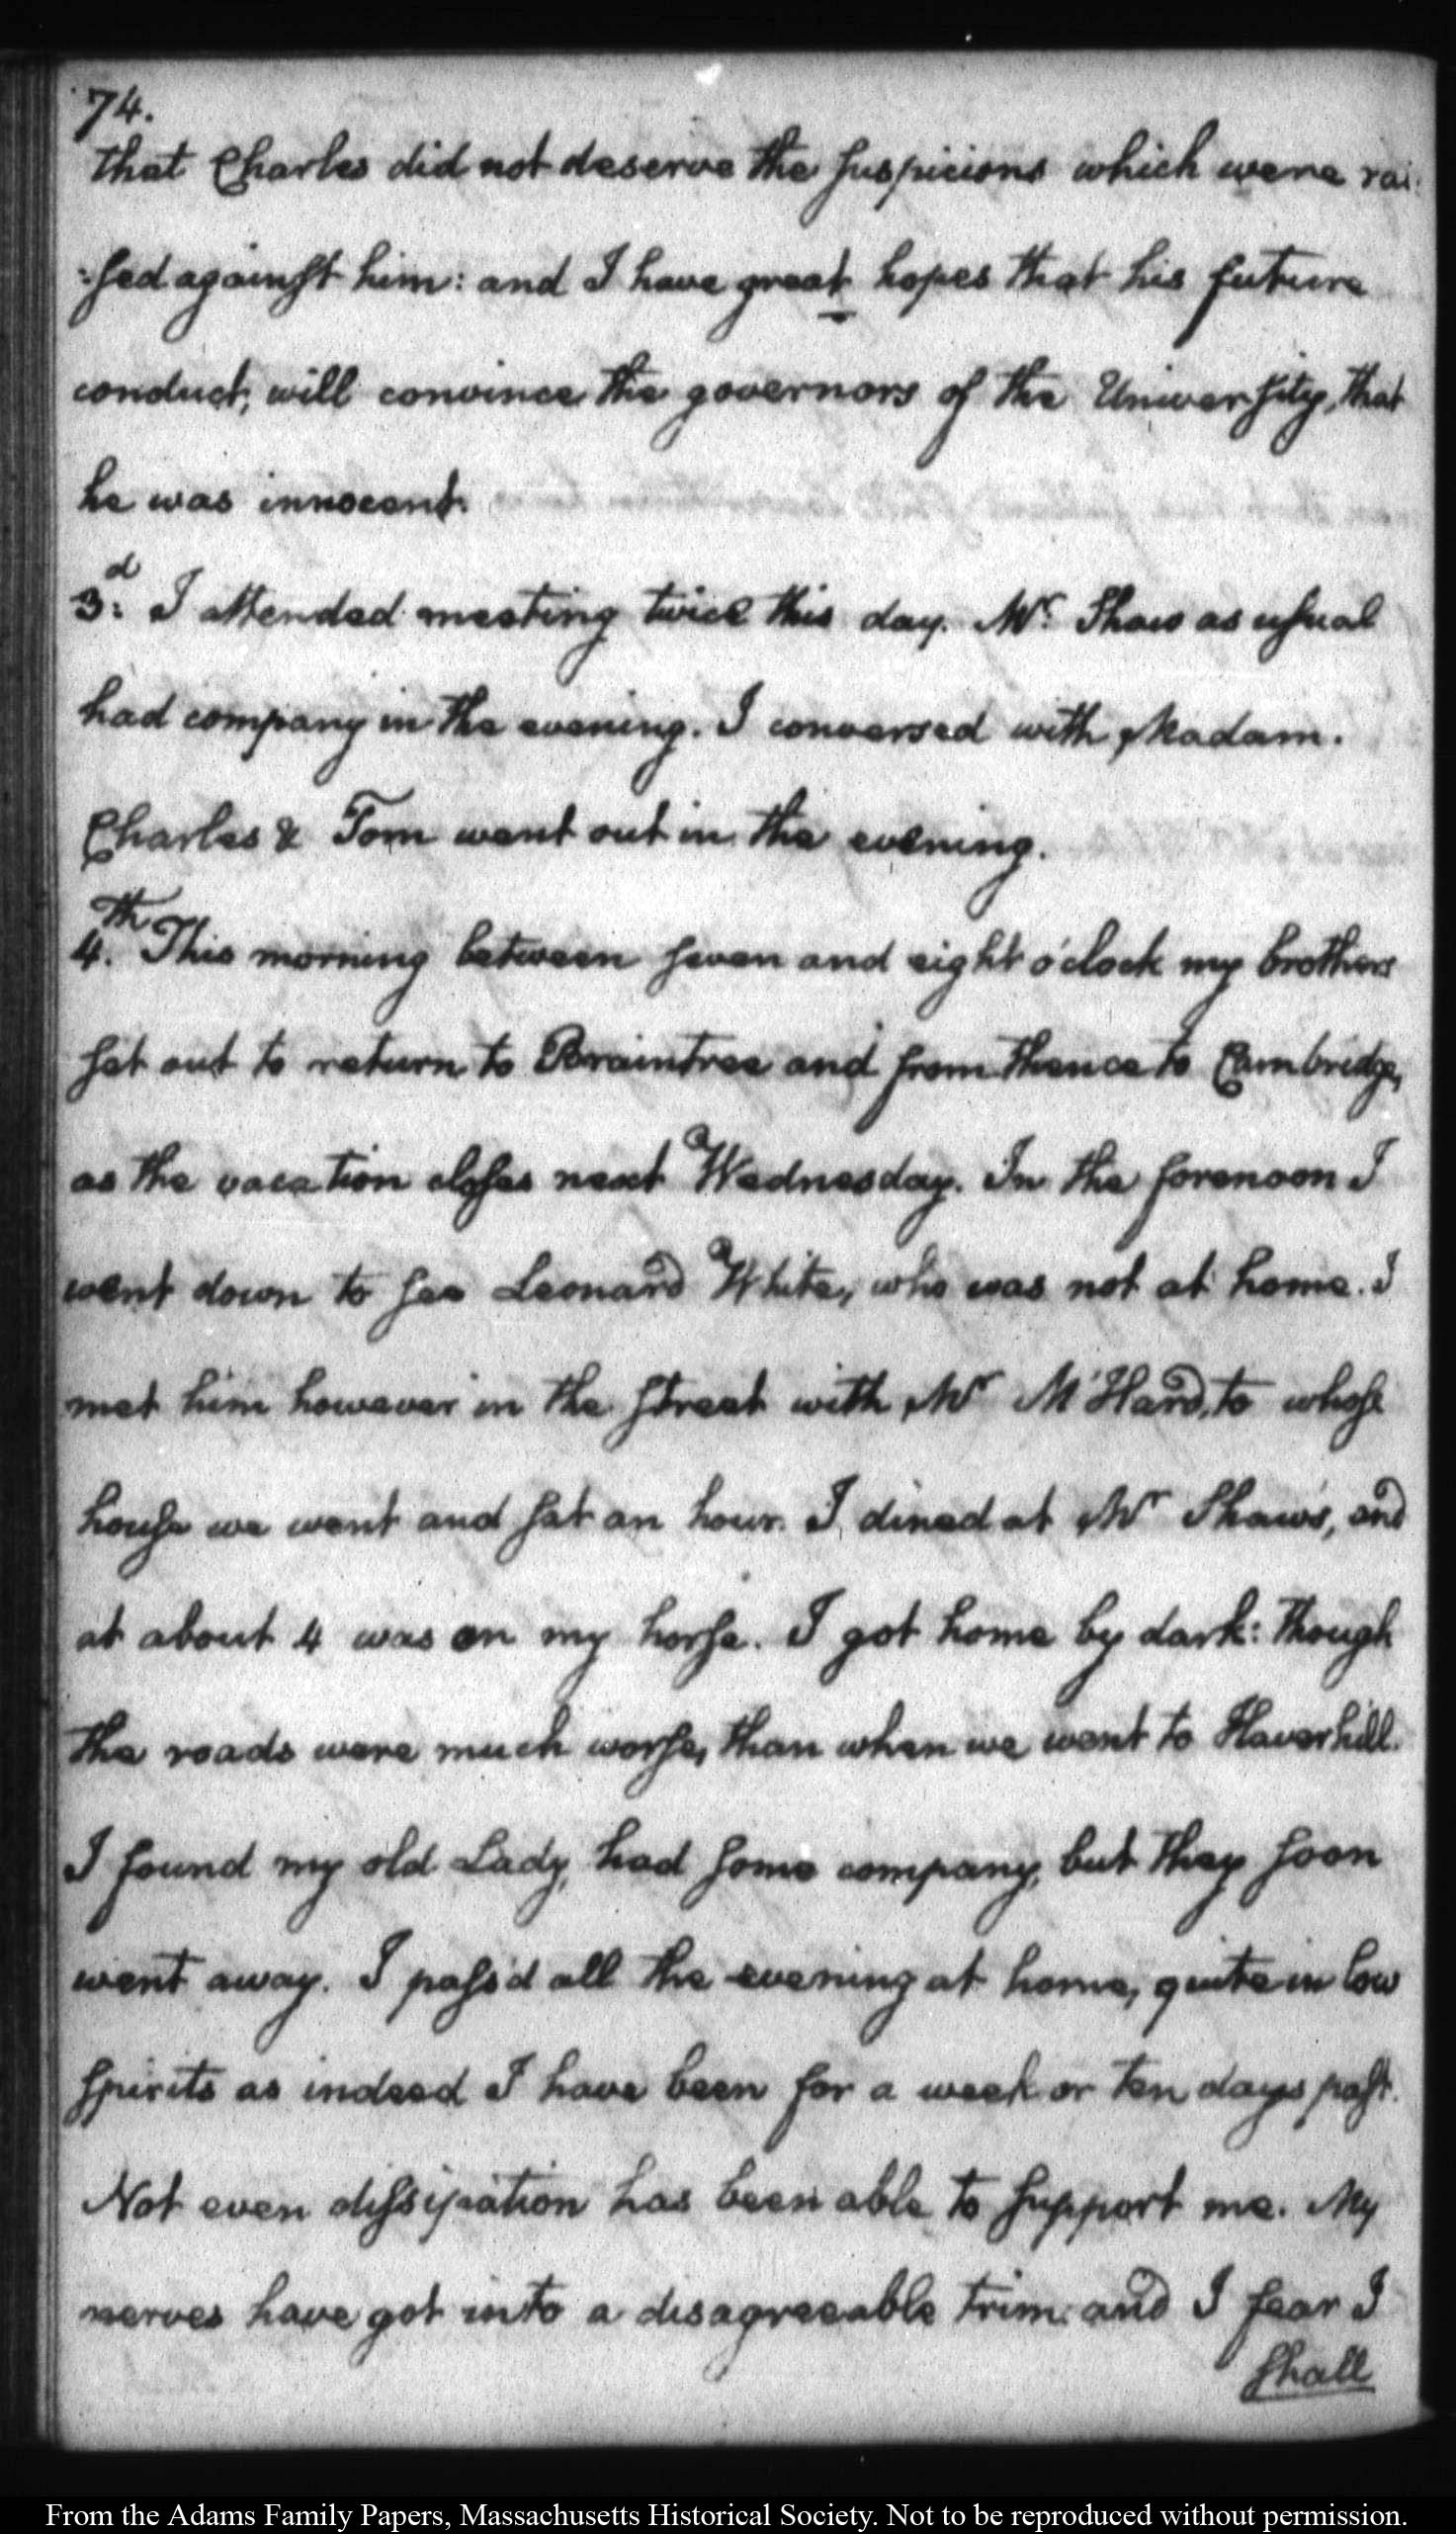 74.
that Charles did not deserve the suspicions which were rai:
:sed against him: and I have great hopes that his future
conduct, will convince the governors of the University, that
he was innocent.
3.d I attended meeting twice this day. Mr. Shaw as usual
had company in the evening. I conversed with Madam.
Charles & Tom went out in the evening.
4.th This morning between seven and eight o'clock my brothers
set out to return to Braintree and from thence to Cambridge,
as the vacation closes next Wednesday. In the forenoon I
went down to see Leonard White, who was not at home. I
met him however in the street with Mr M'Hard, to whose
house we went and sat an hour. I dined at Mr Shaw's, and
at about 4 was on my horse. I got home by dark: though
the roads were much worse, than when we went to Haverhill.
I found my old Lady, had some company, but they soon
went away. I pass'd all the evening at home, quite in low
spirits as indeed I have been for a week or ten days past.
Not even dissipation has been able to support me. My
nerves have got into a disagreeable trim: and I fear I
shall
From the Adams Family Papers, Massachusetts Historical Society. Not to be reproduced without permission.